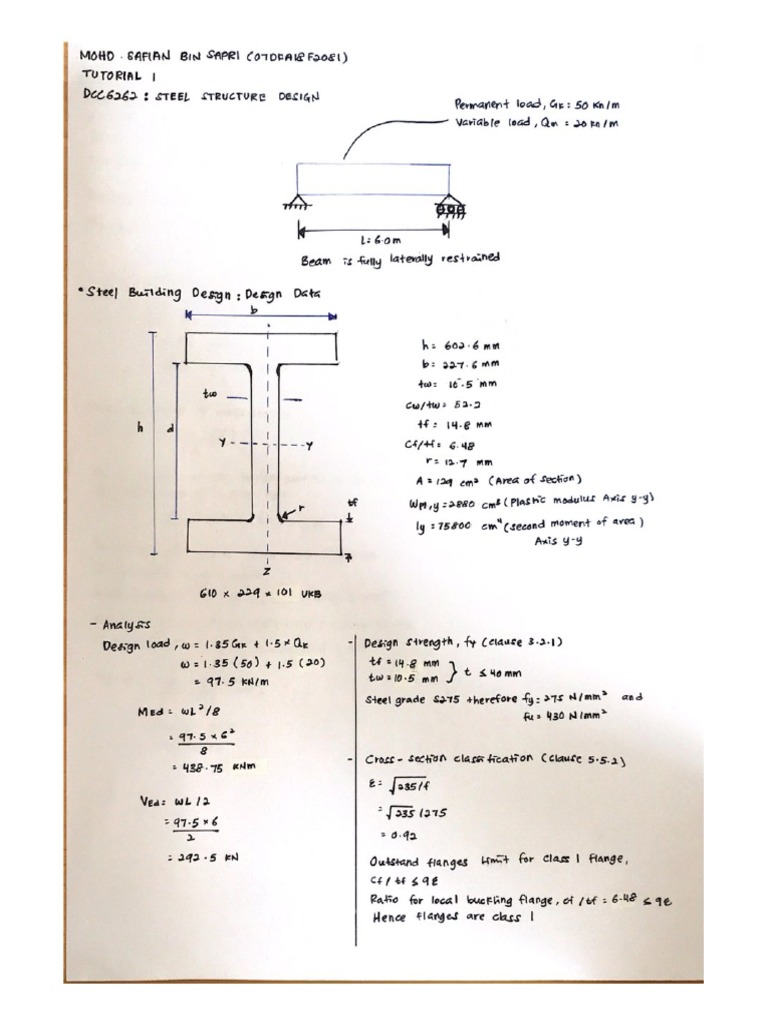 MOHD. SAFIAN BIN SAPRI (07DFA18F2081)
TUTORIAL 1
DCC6262 : STEEL STRUCTURE DESIGN
Permanent load, Gk : 50 kn/m
Variable load, Qm = 20 kn/m
L = 6.0m
Beam is fully laterally restrained
• Steel Building Design : Design Data
b
h
d
tw
y y
r
tf
z
610 x 229 x 101 UKB
h = 602.6 mm
b = 227.6 mm
tw = 10.5 mm
Cw/tw = 52.2
tf = 14.8 mm
Cf/tf = 6.48
r = 12.7 mm
A = 129 cm² (Area of section)
Wpl,y = 2880 cm³ (Plastic modulus Axis y-y)
Iy = 75800 cm⁴ (second moment of area)
Axis y-y
- Analysis
Design load, ω = 1.35 Gk + 1.5 x Qk
ω = 1.35 (50) + 1.5 (20)
= 97.5 kN/m
MEd = WL²/8
= 97.5 x 6²
8
= 438.75 KNm
VEd = WL/2
= 97.5 x 6
2
= 292.5 KN
- Design strength, fy (clause 3.2.1)
tf = 14.8 mm
tw = 10.5 mm } t ≤ 40 mm
Steel grade S275 therefore fy = 275 N/mm² and
fu = 430 N/mm²
- Cross-section classification (clause 5.5.2)
ε = √235/f
= √235/275
= 0.92
Outstand flanges limit for class 1 flange,
Cf / tf ≤ 9ε
Ratio for local buckling flange, cf / tf = 6.48 ≤ 9ε
Hence flanges are class 1